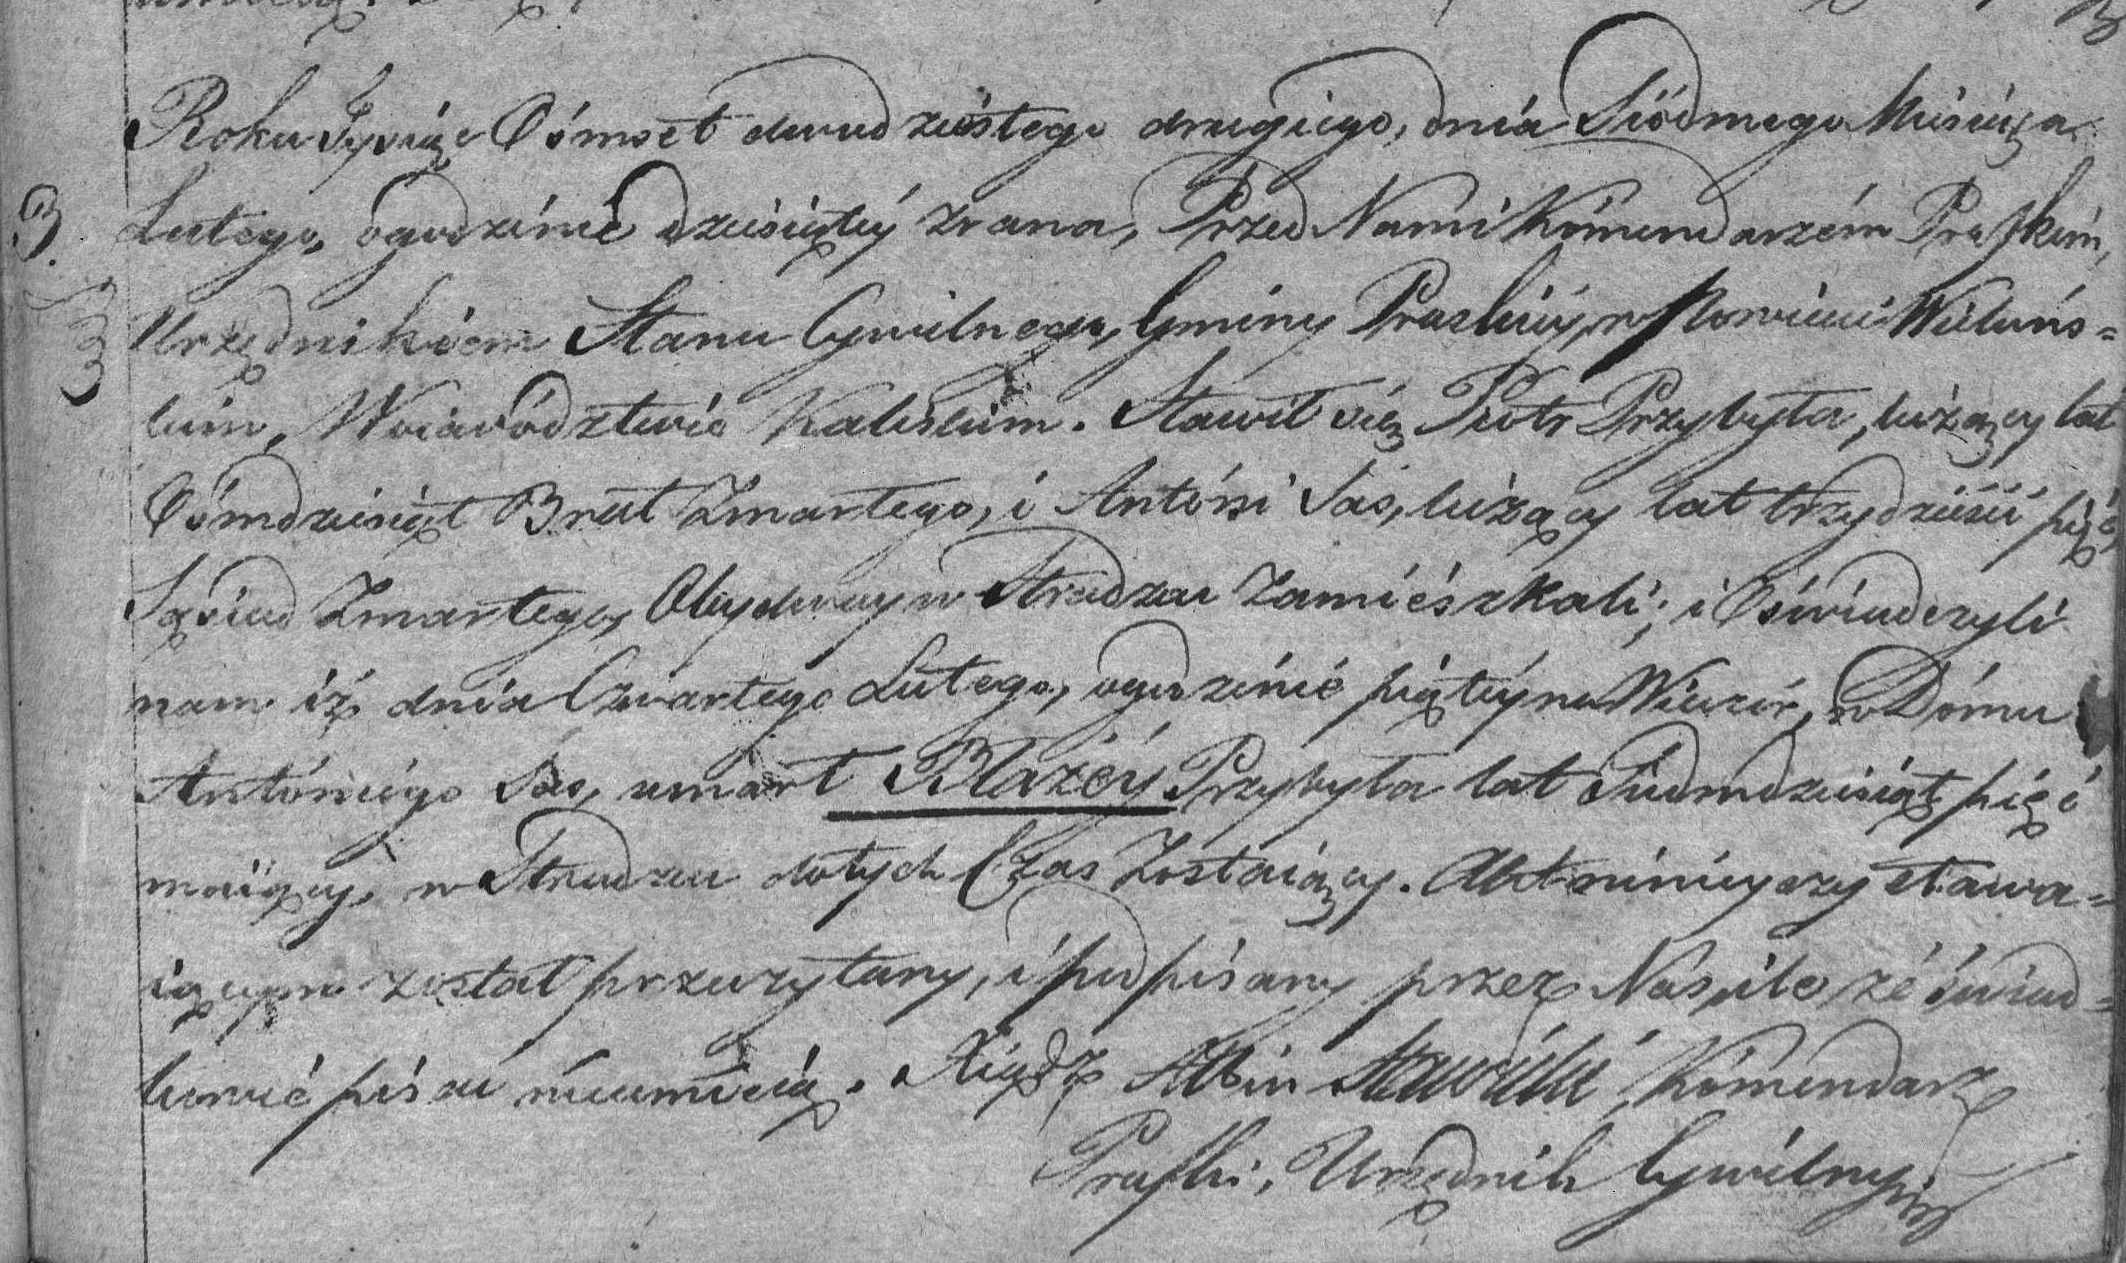 Roku Tysiąc Ośmset dwudziestego drugiego, dnia Siódmego Miesiąca
Lutego, ogodzinie dziesiątéy zrana, Przed Nami Kommendarzem Praszkim,
3.
Urzędnikiem Stanu Cywilnego, Gminy Praskiéy, w Powiecie Wieluńs=
kim, Woiewództwie Kaliskim. Stawił się Piotr Przybyła, liczący lat
Ośmdziesiąt Brat Zmarłego, i Antóni Sas, liczący lat trzydzieści pięć
Sąsiad Zmarłego, Obydway w Zamieszkali; i Oświadczyli
nam iż dnia Czwartego Lutego, ogodzinie piątéy na Wieczór, w Domu
Antóniego Sas, umarł Błażéy Przybyła lat Siedmdziesiąt pięć
maiący, w dotych Czas Zostaiący. Akt ninieyszy stawa=
iącym został przeczytany, i podpisany przez Nas, ile że świad=
kowie pisać nieumieią. Xiądz Albin Kómendarz
Praszki, Urzędnik Cywilny